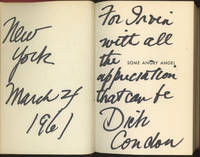 New
York
March 24
1961
For Irvin
with all
the
SOME ANGRY ANGEL
appreciation
that can be
Dick
Condon